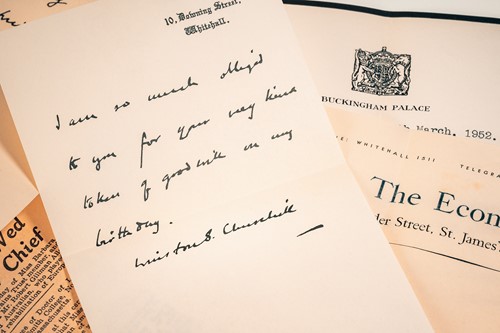 10, Downing Street,
Whitehall.
I am so much obliged
to you for your very kind
token of goodwill on my
birthday.
Winston S. Churchill
BUCKINGHAM PALACE
March, 1952.
WHITEHALL 1511
TELEGRA
The Econ
der Street, St. James'
ved
Chief